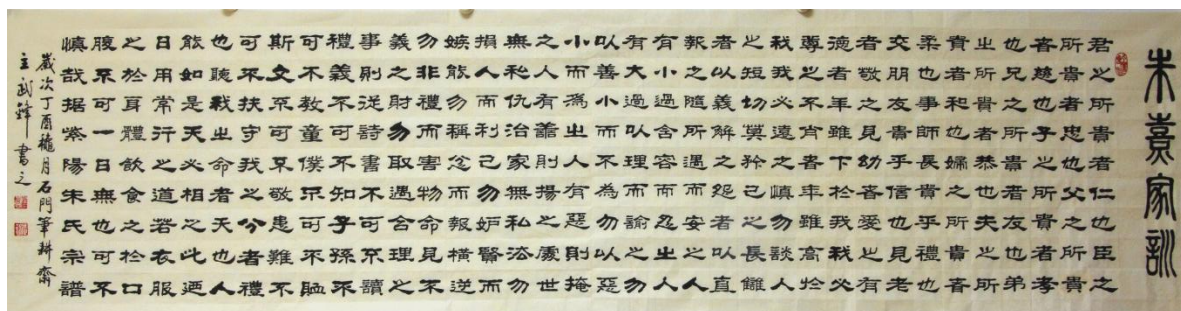 朱熹家訓
君之所貴者仁也臣之
所貴者忠也父之所貴
者慈也子之所貴者孝
也兄之所貴者友也弟
之所貴者恭也夫之所
貴者和也婦之所貴者
柔也事師長貴乎禮也
交朋友貴乎信也見老
者敬之見幼者愛之有
德者年雖下於我我必
尊之不肖者年雖高於
我我必遠之慎勿談人
之短切莫矜己之長讎
者以義解之怨者以直
報之隨所遇而安之人
有小過含容而忍之人
有大過以理而諭之勿
以善小而不為勿以惡
小而為之人有惡則掩
之人有善則揚之處世
無私仇治家無私法勿
損人而利己勿妒賢而
嫉能勿稱忿而報橫逆
勿非禮而害物命見不
義之財勿取遇合理之
事則從詩書不可不讀
禮義不可不知子孫不
可不教童僕不可不恤
斯文不可不敬患難不
可不扶守我之分者禮
也聽我之命者天也人
能如是天必相之此迺
日用常行之道若衣服
之於身體飲食之於口
腹不可一日無也可不
慎哉据紫陽朱氏宗譜
歲次丁酉穐月石門筆耕齋
主武鋒書之